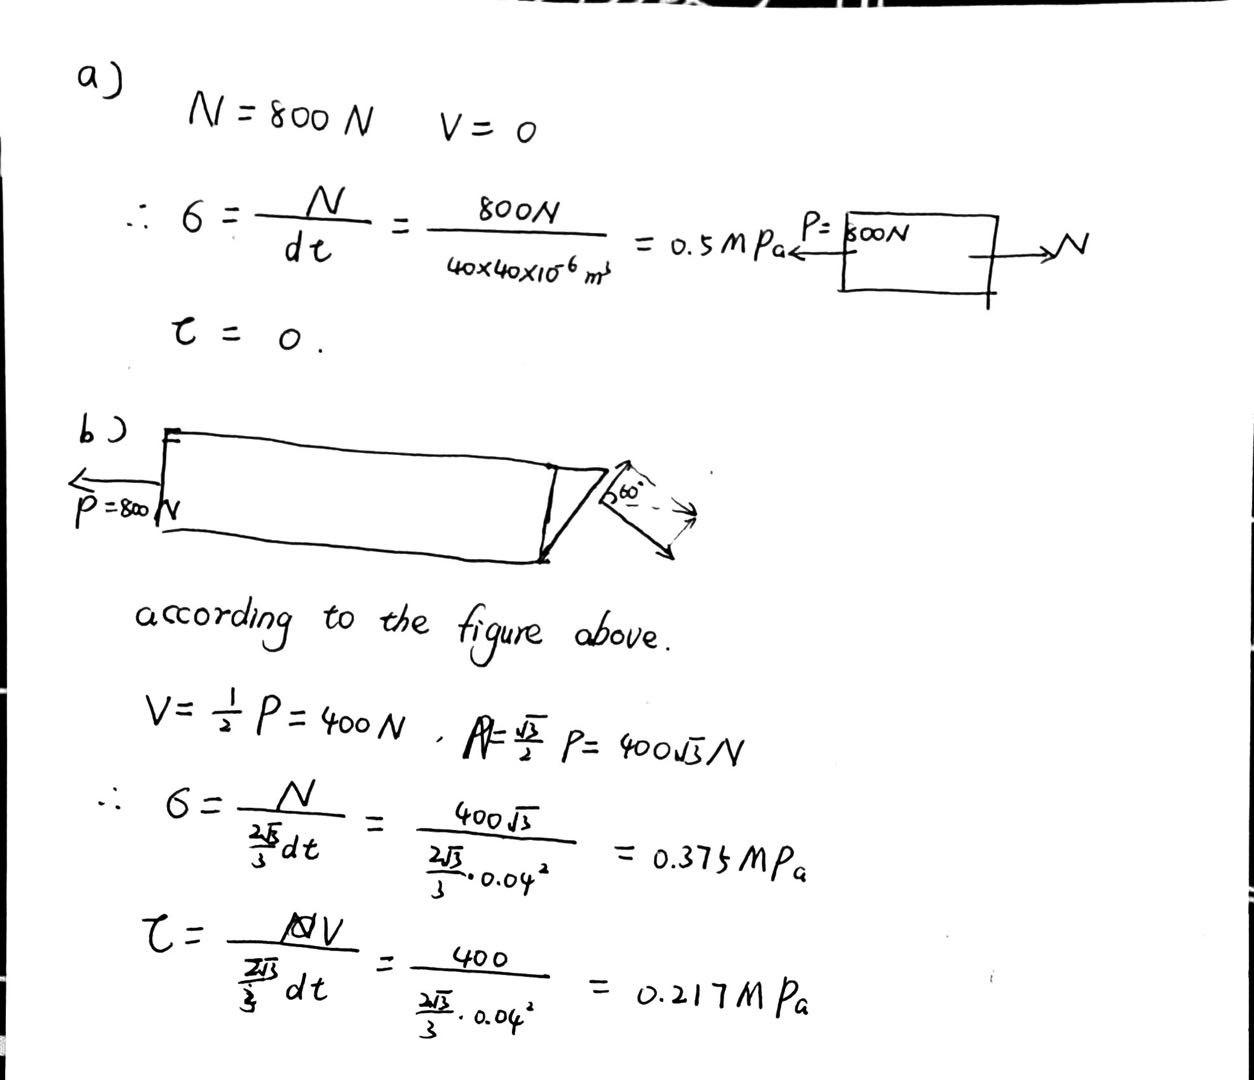 a)
N = 800 N V = 0
∴ 6 = N / dt = 800N / 40×40×10⁻⁶ m³ = 0.5 MPa
P = 800N
N
τ = 0.
b)
P = 800 N
60°
according to the figure above.
V = 1/2 P = 400 N , N = √3/2 P = 400√3 N
∴ 6 = N / (2√3/3 dt) = 400√3 / (2√3/3 · 0.04²) = 0.375 MPa
τ = V / (2√3/3 dt) = 400 / (2√3/3 · 0.04²) = 0.217 MPa